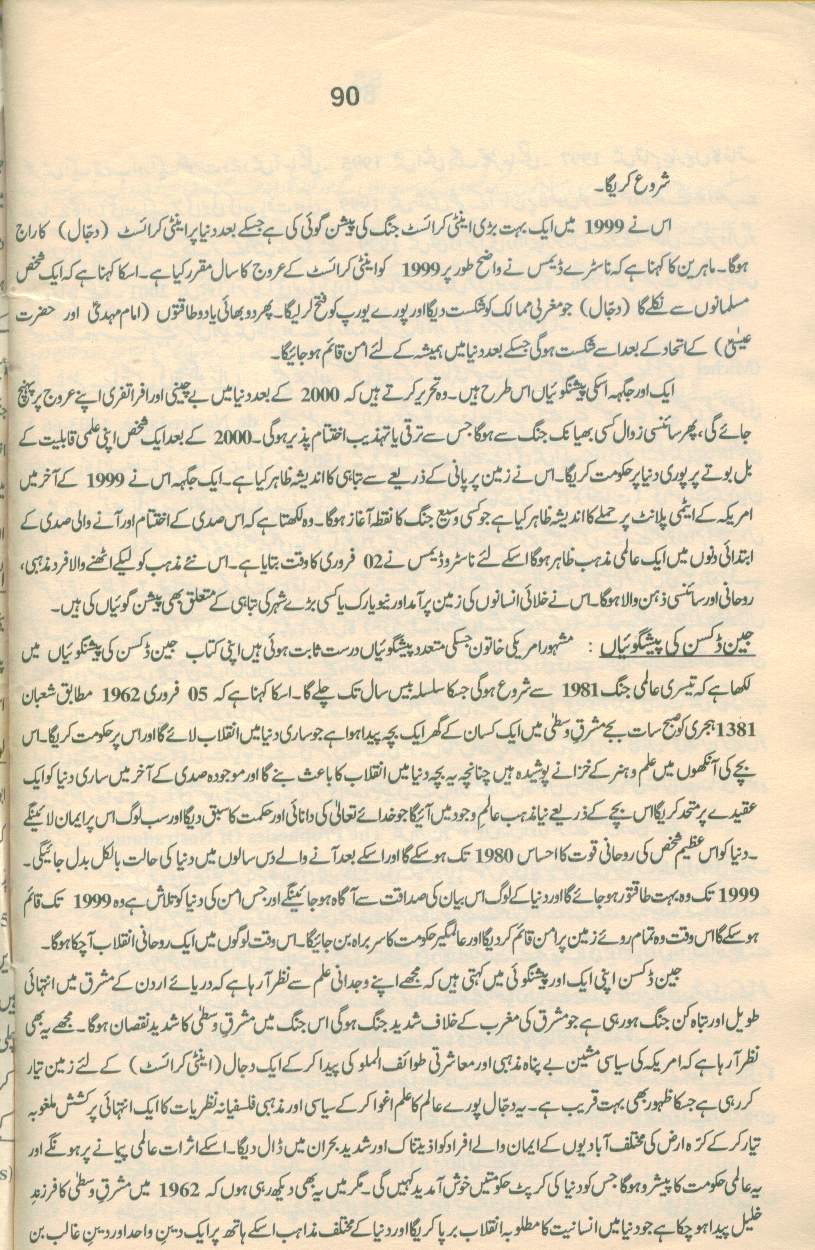 90
شروع کریگا۔
اس نے 1999 میں ایک بہت بڑی اینٹی کرائسٹ جنگ کی پیشن گوئی کی ہے جسکے بعد دنیا پر اینٹی کرائسٹ (دجّال) کا راج
ہوگا۔ ماہرین کا کہنا ہے کہ ناسٹرے ڈیمس نے واضح طور پر 1999 کو اینٹی کرائسٹ کے عروج کا سال مقرر کیا ہے۔ اسکا کہنا ہے کہ ایک شخص
مسلمانوں سے نکلے گا (دجّال) جو مغربی ممالک کو شکست دیگا اور پورے یورپ کو فتح کر لیگا۔ پھر دو بھائی یا دو طاقتوں (امام مہدیؑ اور حضرت
عیسیٰؑ) کے اتحاد کے بعد اسے شکست ہوگی جسکے بعد دنیا میں ہمیشہ کے لئے امن قائم ہو جائیگا۔
ایک اور جگہہ اسکی پیشنگوئیاں اس طرح ہیں۔ وہ تحریر کرتے ہیں کہ 2000 کے بعد دنیا میں بے چینی اور افراتفری اپنے عروج پر پہنچ
جائے گی، پھر سائنسی زوال کسی بھیانک جنگ سے ہوگا جس سے ترقی یا تہذیب اختتام پذیر ہوگی۔ 2000 کے بعد ایک شخص اپنی علمی قابلیت کے
بل بوتے پر پوری دنیا پر حکومت کریگا۔ اس نے زمین پر پانی کے ذریعے سے تباہی کا اندیشہ ظاہر کیا ہے۔ ایک جگہہ اس نے 1999 کے آخر میں
امریکہ کے ایٹمی پلانٹ پر حملے کا اندیشہ ظاہر کیا ہے جو کسی وسیع جنگ کا نقطہ آغاز ہوگا۔ وہ لکھتا ہے کہ اس صدی کے اختتام اور آنے والی صدی کے
ابتدائی دنوں میں ایک عالمی مذہب ظاہر ہوگا اسکے لئے ناسٹروڈیمس نے 02 فروری کا وقت بتایا ہے۔ اس نئے مذہب کو لیکے اٹھنے والا فرد مذہبی،
روحانی اور سائنسی ذہن والا ہوگا۔ اس نے خلائی انسانوں کی زمین پر آمد اور نیویارک یا کسی بڑے شہر کی تباہی کے متعلق بھی پیشن گوئیاں کی ہیں۔
جین ڈکسن کی پیشگوئیاں : مشہور امریکی خاتون جسکی متعدد پیشگوئیاں درست ثابت ہوئی ہیں اپنی کتاب جین ڈکسن کی پیشنگوئیاں میں
لکھا ہے کہ تیسری عالمی جنگ 1981 سے شروع ہوگی جسکا سلسلہ بیس سال تک چلے گا۔ اسکا کہنا ہے کہ 05 فروری 1962 مطابق شعبان
1381 ہجری کو صبح سات بجے مشرق وسطٰی میں ایک کسان کے گھر ایک بچہ پیدا ہوا ہے جو ساری دنیا میں انقلاب لائے گا اور اس پر حکومت کریگا۔ اس
بچے کی آنکھوں میں علم و ہنر کے خزانے پوشیدہ ہیں چنانچہ یہ بچہ دنیا میں انقلاب کا باعث بنے گا اور موجودہ صدی کے آخر میں ساری دنیا کو ایک
عقیدے پر متحد کریگا اس بچے کے ذریعے نیا مذہب عالم وجود میں آئیگا جو خدائے تعالیٰ کی دانائی اور حکمت کا سبق دیگا اور سب لوگ اس پر ایمان لائینگے
۔ دنیا کو اس عظیم شخص کی روحانی قوت کا احساس 1980 تک ہو سکے گا اور اسکے بعد آنے والے دس سالوں میں دنیا کی حالت بالکل بدل جائیگی۔
1999 تک وہ بہت طاقتور ہو جائے گا اور دنیا کے لوگ اس بیان کی صداقت سے آگاہ ہو جائینگے اور جس امن کی دنیا کو تلاش ہے وہ 1999 تک قائم
ہو سکے گا اس وقت وہ تمام روئے زمین پر امن قائم کر دیگا اور عالمگیر حکومت کا سربراہ بن جائیگا۔ اس وقت لوگوں میں ایک روحانی انقلاب آ چکا ہوگا۔
جین ڈکسن اپنی ایک اور پیشنگوئی میں کہتی ہیں کہ مجھے اپنے وجدانی علم سے نظر آ رہا ہے کہ دریائے اردن کے مشرق میں انتہائی
طویل اور تباہ کن جنگ ہو رہی ہے جو مشرق کی مغرب کے خلاف شدید جنگ ہوگی اس جنگ میں مشرق وسطٰی کا شدید نقصان ہوگا۔ مجھے یہ بھی
نظر آ رہا ہے کہ امریکہ کی سیاسی مشین بے پناہ مذہبی اور معاشرتی طوائف الملوکی پیدا کر کے ایک دجال (اینٹی کرائسٹ) کے لئے زمین تیار
کر رہی ہے جسکا ظہور بھی بہت قریب ہے۔ یہ دجّال پورے عالم کا علم اغوا کر کے سیاسی اور مذہبی فلسفیانہ نظریات کا ایک انتہائی پرکشش ملغوبہ
تیار کر کے کرّہ ارض کی مختلف آبادیوں کے ایمان والے افراد کو اذیتناک اور شدید بحران میں ڈال دیگا۔ اسکے اثرات عالمی پیمانے پر ہونگے اور
یہ عالمی حکومت کا پیشرو ہوگا جس کو دنیا کی کرپٹ حکومتیں خوش آمدید کہیں گی۔ مگر میں یہ بھی دیکھ رہی ہوں کہ 1962 میں مشرق وسطٰی کا فرزندِ
خلیل پیدا ہو چکا ہے جو دنیا میں انسانیت کا مطلوبہ انقلاب برپا کریگا اور دنیا کے مختلف مذاہب اسکے ہاتھ پر ایک دینِ واحد اور دینِ غالب بن